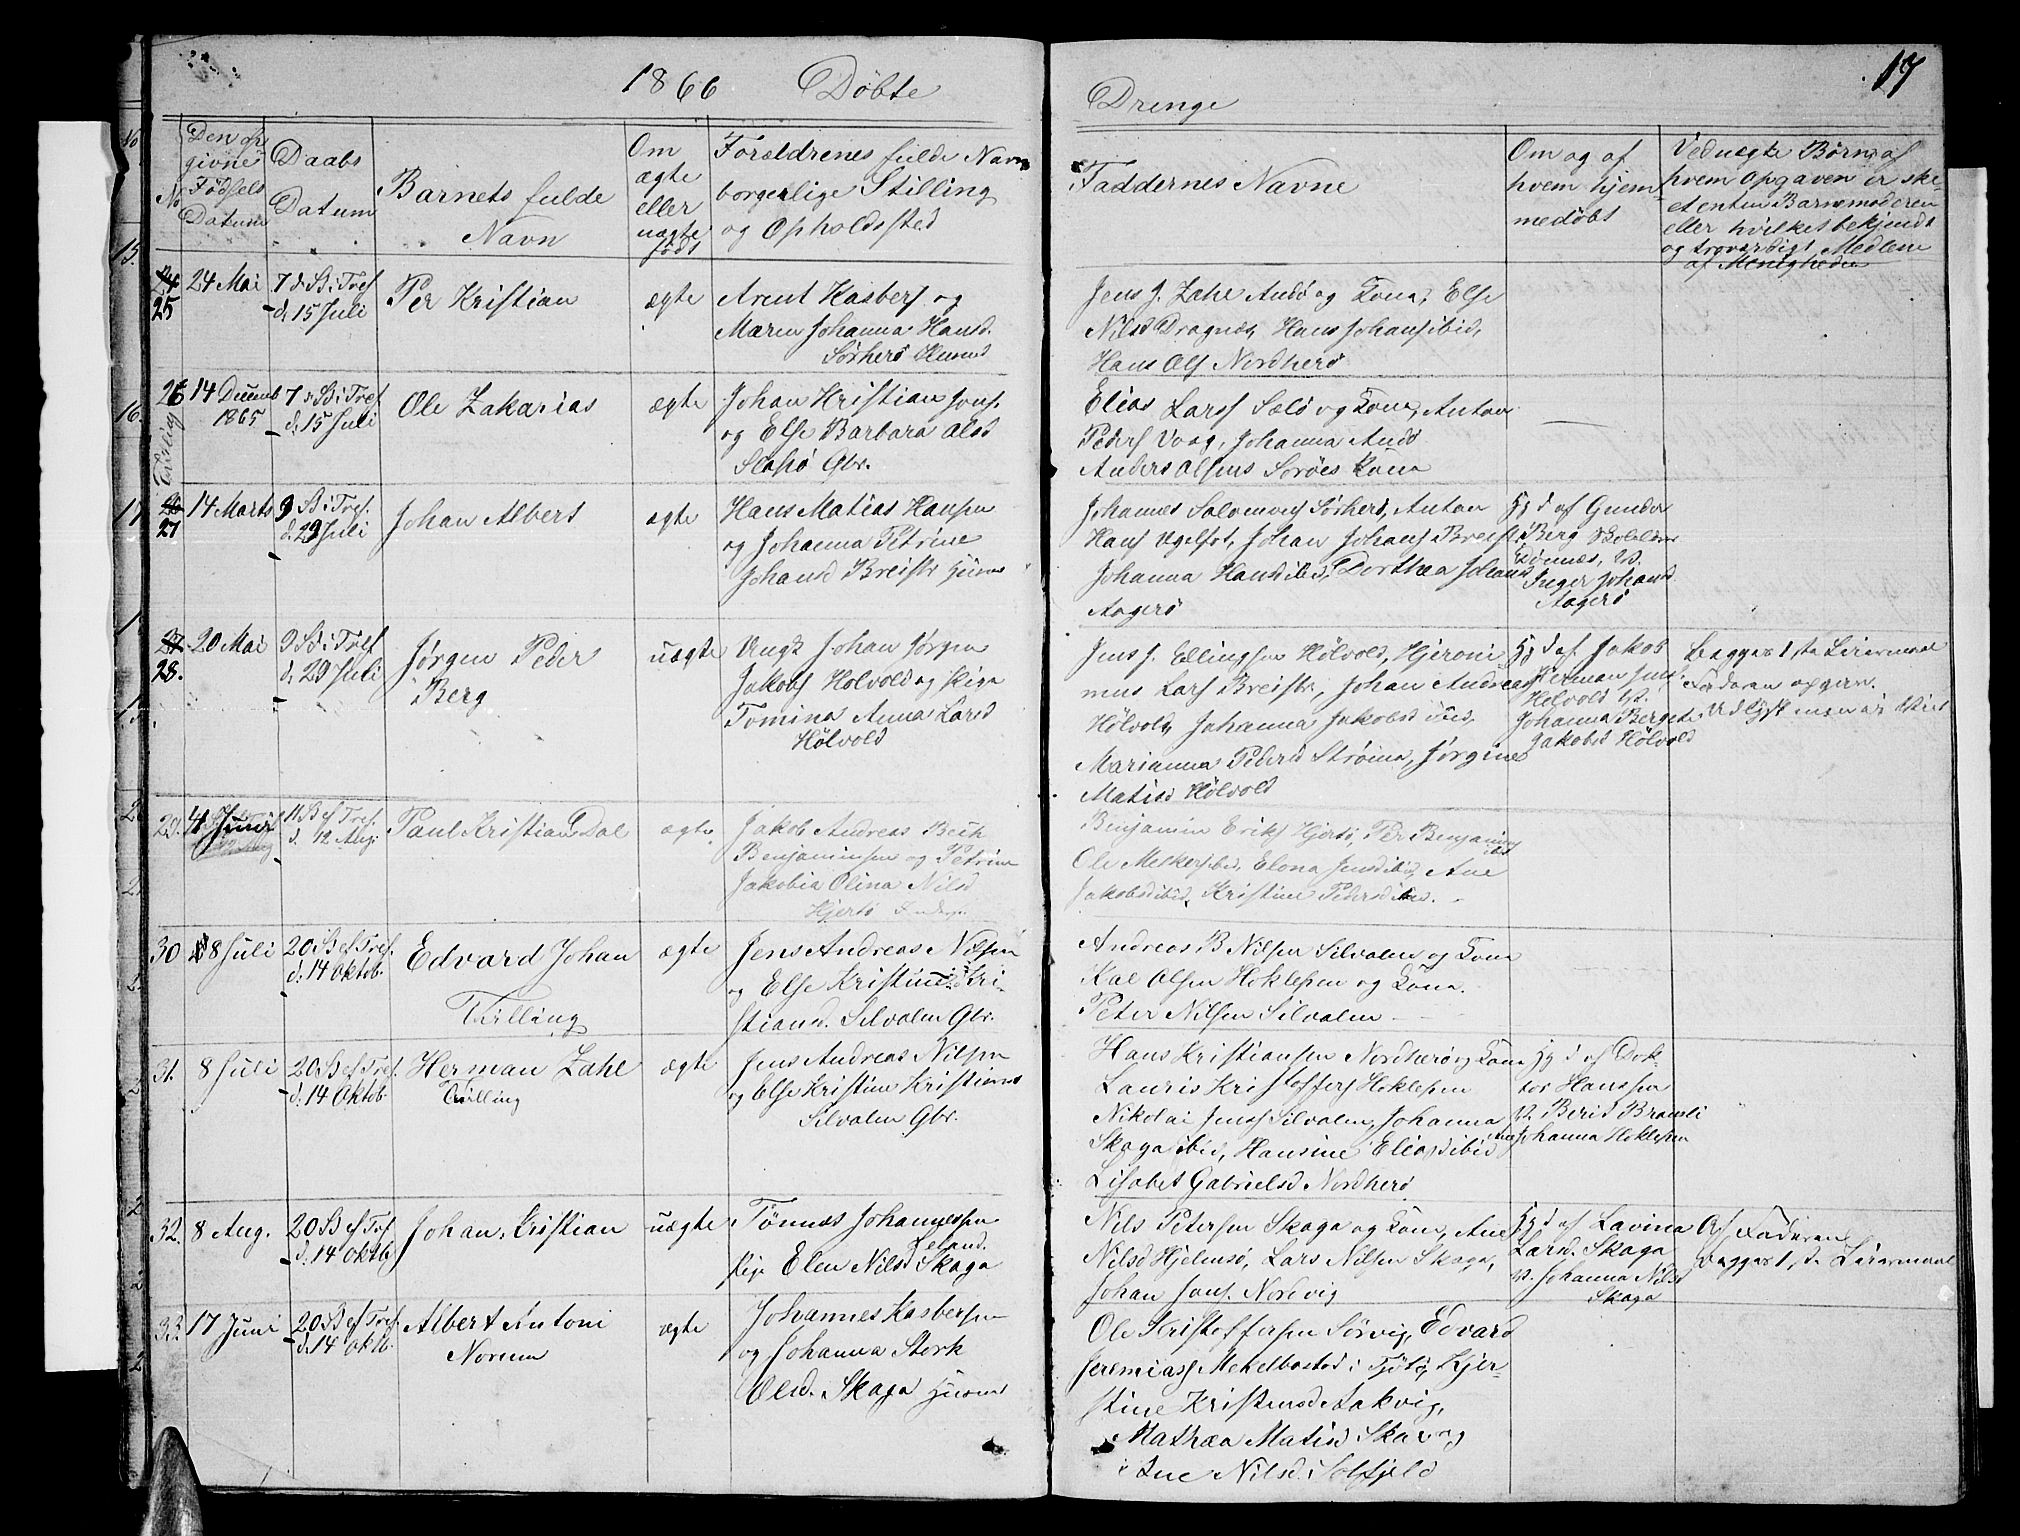 1866 Döbte
Drenge
17
No
Den op
givne
Födsels
Datum
Daabs
Datum
Barnets fulde
Navn
Om
ægte
eller
uægte
födt
Forældrenes fulde Navn
borgerlige Stilling
og Opholdssted
Faddernes Navne
Om og af
hvem hjem-
medöbt
Ved uægte Börn af
hvem Opgaven er ske-
et enten Barnemoderen
eller hvilket bekjendt
og troværdigt Medlem
af Menigheden
24
25
24 Mai
7 S. i Tref
d. 15 Juli
Per Kristian
ægte
Arent Kasbers og
Maren Johanna Hansd.
Sörherö
Jens J. Zahl Andö og Kona, Else
Nilsd Dragnes, Hans Johans ibid,
Hans Ols Nordherö
26
14 Decemb
1865
7 S. i Tref
d. 15 Juli
Ole Zakarias
ægte
Johan Kristian Jens.
og Else Barbara Olsd
Slahö Gbr.
Elias Larss Sælö og Kona, Anton
Peders Vaag, Johanna Andö
Anders Olsens Soröes Kona
26
27
14 Marts
9 S. i Tref.
d. 29 Juli
Johan Albert
ægte
Hans Matias Hansen
og Johanna Petrine
Johansd Breistr.
Johannes Salomons Sörherö, Anton
Hans Ugelfot, Johan Johans Breistr,
Johanna Hansd ibid, Dorthea Johans
Aagerö
Hjd af Gunder
Berg
Inger Johansd
Aagerö
27
28.
20 Mai
9 S. i Tref
d. 29 Juli
Jörgen Peder
Berg
uægte
Ungk Johan Jörgen
Jakobs Hölvold og Pige
Tomina Anna Larsd
Hölvold
Jens J. Ellingsen Hölvold, Hjeroni
mus Lars Breistr, Johan Andreas
Hölvold, Johanna Jakobsd ibid.
Marianna Pedersd Ströina, Jörgine
Matisd Hölvold
Hjd af Jakob
Herman Jens.
Hölvold
Johanna Bergete
Jakobsd Hölvold
Begges 1ste Leiermaal
Faderen opgiven.
29.
4 Juni
11 S. ef Tref.
d. 12 Aug
Paul Kristian Dal
ægte
Jakob Andreas Bech
Benjaminsen og Petrine
Jakobia Olina Nilsd
Hjertö
Benjamin Eriks Hjertö, Per Benjamins
ibid
Ole Melkers ibid, Elona Jensd ibid, Ane
Jakobsd ibid, Kristine Pedersd ibid.
30
8 Juli
20 S. ef Tref.
d. 14 Oktob.
Edvard Johan
Tvilling
ægte
Jens Andreas Nilsen
og Else Kristine Kri-
stiansd. Silvalen Gbr.
Andreas B Nilsen Silvalen og Kona
Kal Olsen Hoklesen og Kona.
Peter Nilsen Silvalen
31.
8 Juli
20 S. ef Tref.
d. 14 Oktob.
Herman Zahl
Tvilling
ægte
Jens Andreas Nilsen
og Else Kristine Kristiansd
Silvalen Gbr.
Hans Kristiansen Nordherö og Kona
Lauris Kristoffers Hoklesen
Nikolai Jenss Silvalen, Johanna
Skaga ibid, Hansine Eliasd ibid
Lisabet Gabrielsd Nordherö
Hjd af Dok-
tor Hanssen
v. Berit
Johanna Hoklesen
32.
8 Aug.
20 S. ef Tref
d. 14 Oktb
Johan Kristian
uægte
Tönnes Johannessen
Leland.
Pige Elen Nilsd Skaga
Nils Petersen Skaga og Kona, Ane
Nilsd Hjelmsö, Lars Nilsen Skaga,
Johan Jens. Nordvig
Hjd af Lavina
Larsd. Skaga
v. Johanna Nilsd
Skaga
Af Faderen
Begges 1ste Leiermaal
33.
17 Juni
20 S. ef Tref.
d. 14 Oktb.
Albert Antoni
Norum
ægte
Johannes Kasbersen
og Johanna Stork
Olsd. Skaga
Ole Kristoffersen Sörvig, Edvard
Jeremiass Mekelbostad i Tjötö, Kjer-
stine Kristensd Aakvig,
Mathea Matisd Skavog
Ane Nilsd. i Solfjeld